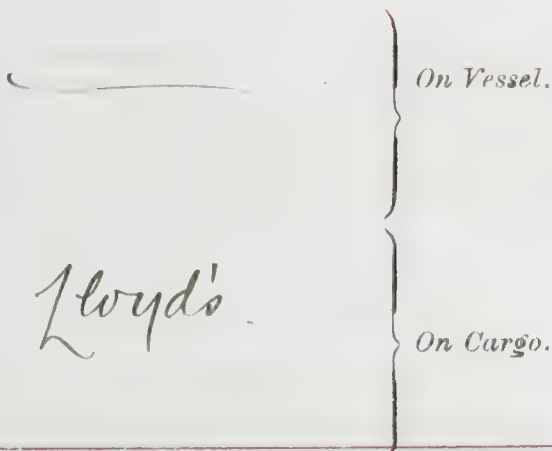 On Vessel.
Lloyd's.
On Cargo.